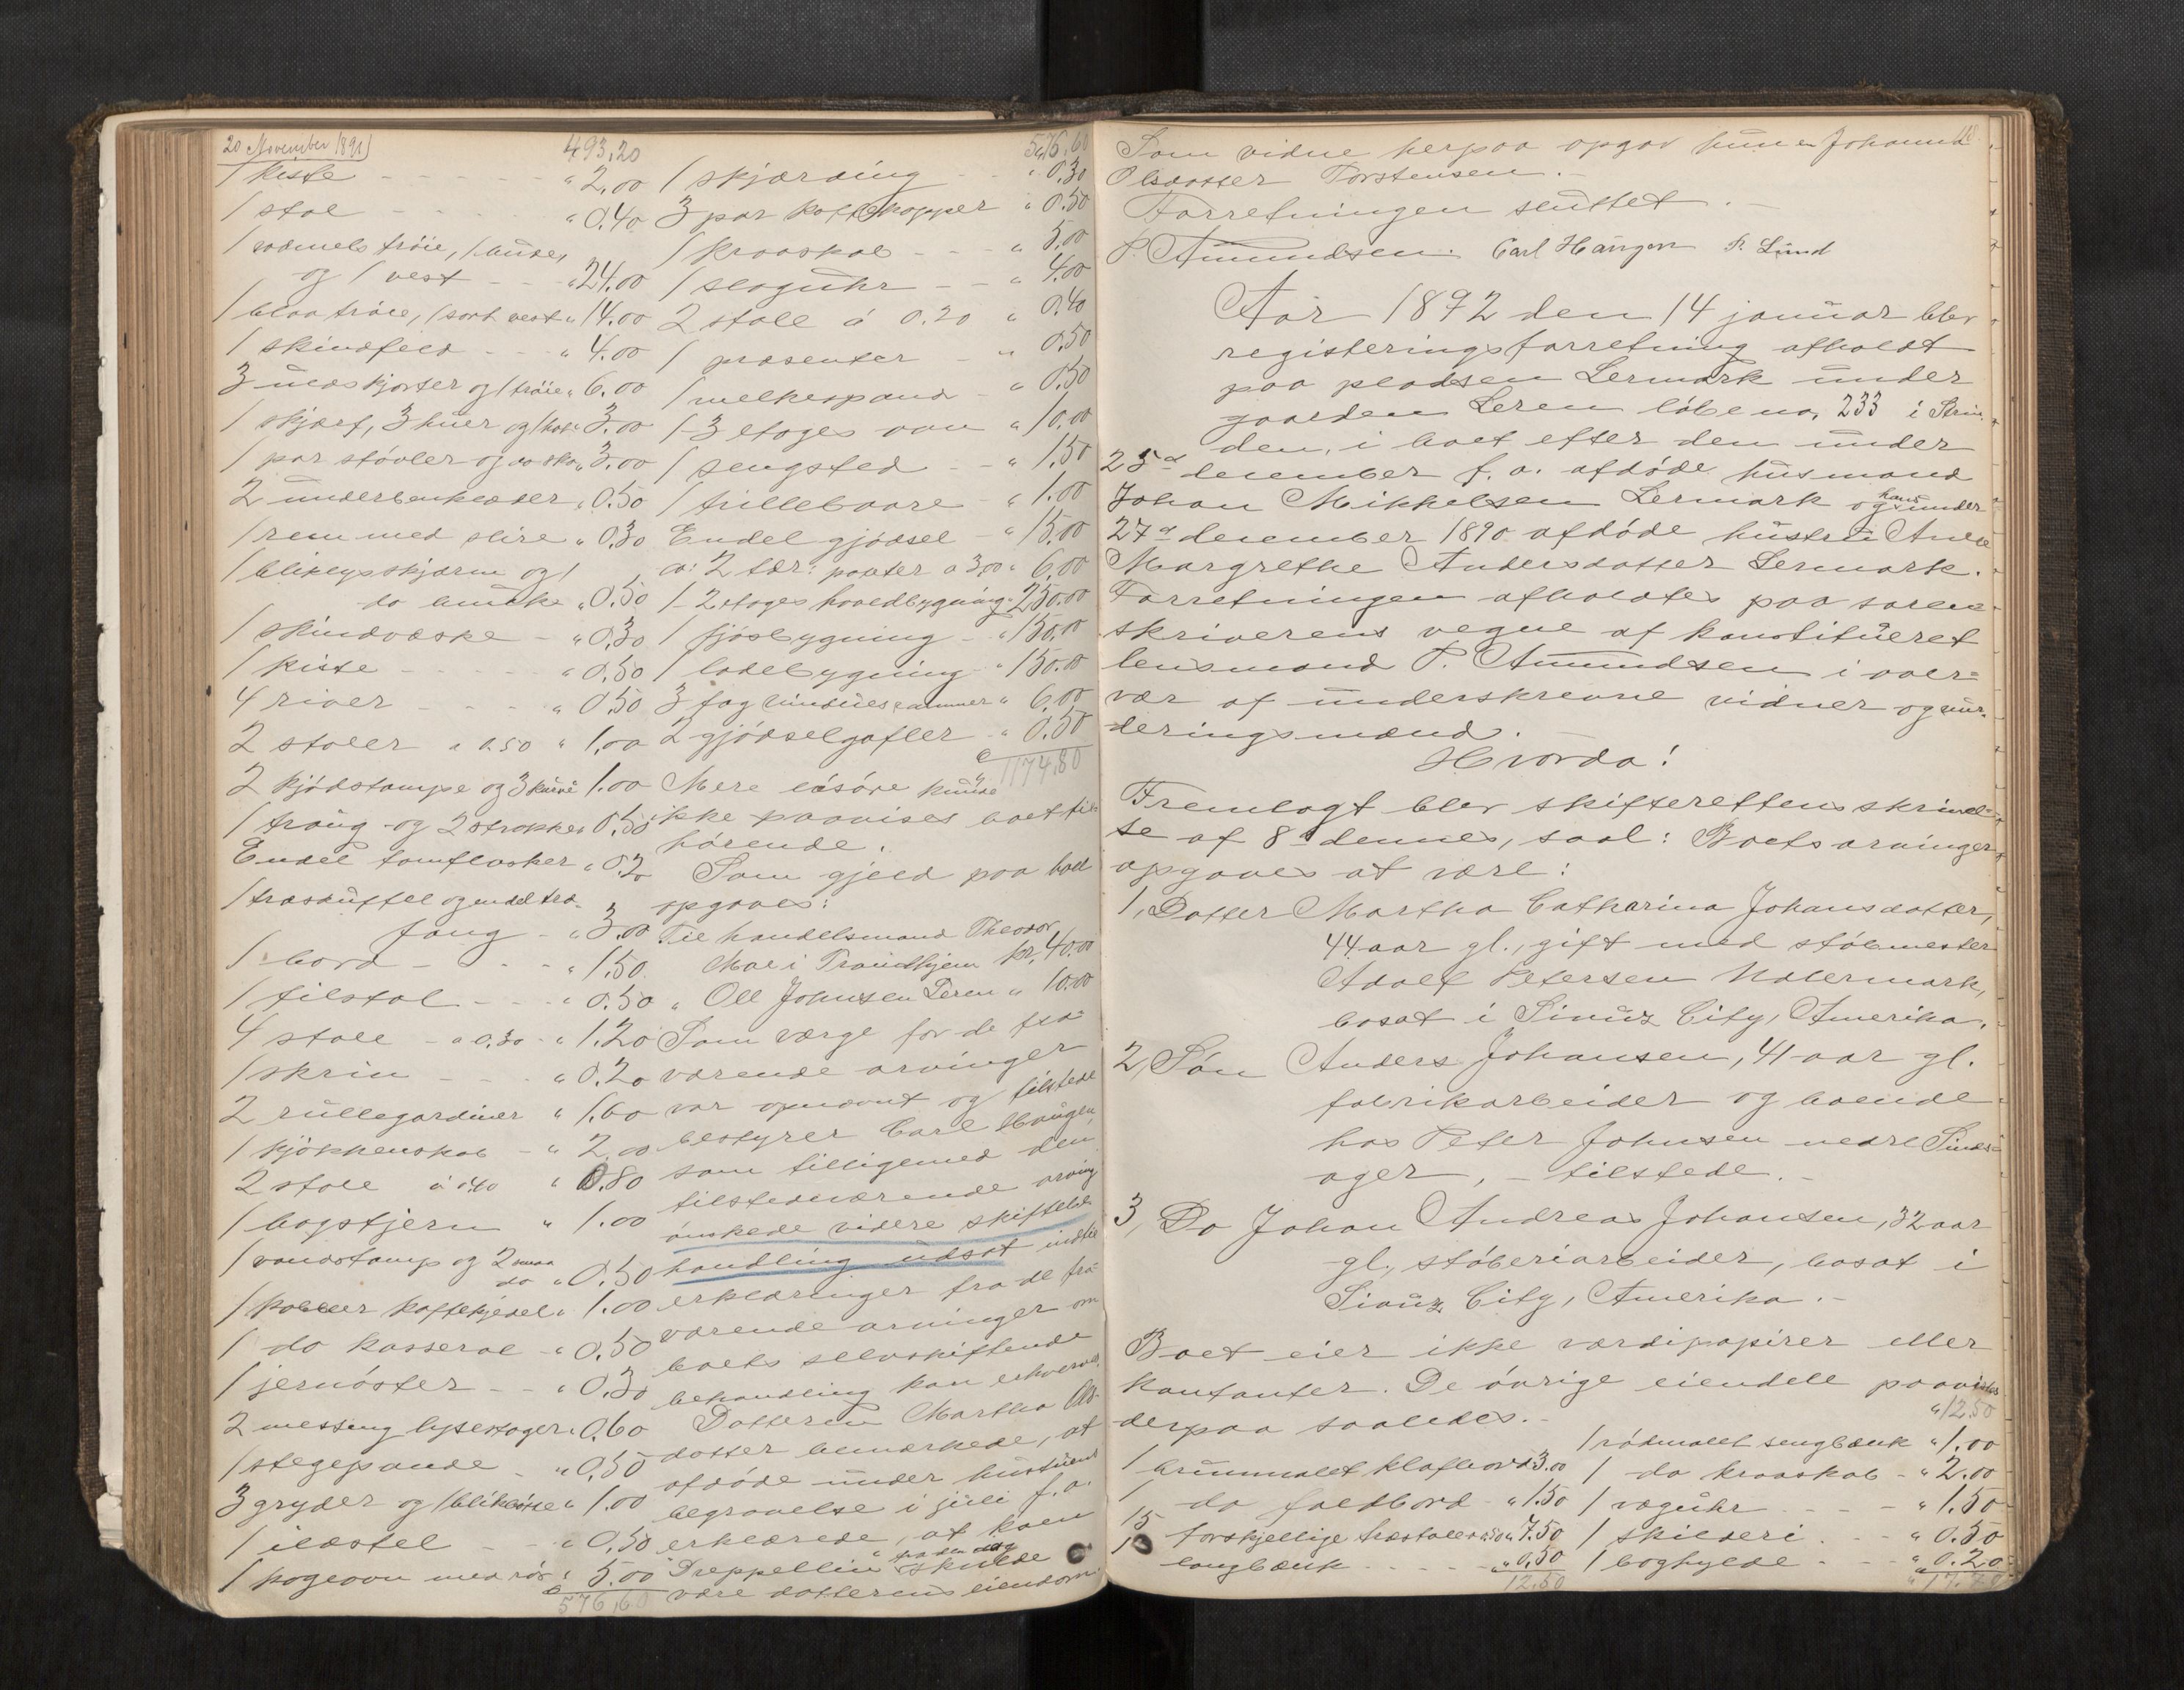 20 November 1891)
493,20
1 kiste - - - - - " 2,00
1 stol - - - - " 0.40
1 vadmels trøie, 1 buxe,
og 1 vest - - " 24.00
1 blaa trøie, 1 sort vest " 14.00
1 skindfeld - - - " 4.00
3 uldskjorter og 1 trøie " 6.00
1 skjærf, 3 huer og 1 hat " 3.00
1 par støvler og do sko " 3.00
2 underbenklæder " 0.50
1 rem med slire " 0,30
1 bliklysskjærm og 1
do bunke " 0,50
1 skindvæske - " 0,30
1 kiste - - - - " 0,50
4 river - - - - " 0,50
2 stoler a 0.50 " 1,00
2 kjødstampe og 3 kurve 1.00
1 traug og 2 strokker 0,50
Endel tomflasker " 0.20
1 træskuffel og endel træ-
fang - " 3.00
1 bord - - - - " 1,50
1 filstol - - - " 0.50
4 stole - a 0,30 - " 1.20
1 skrin - - - " 0.20
2 rullegardiner " 1.60
1 kjøkkenskab - " 2.00
2 stole á 0.40 " 0.80
1 bogstjern " 1.00
1 vandstamp og 2 smaa
do " 0.50
1 kobber kaffekjedel " 1.00
1 do kasserol - " 0,50
1 jernøster - - " 0,30
2 messing lysestager " 0,60
1 stegepande - " 0,50
3 gryder og 1 blikøse " 1.00
1 ildstel - - " 0,50
1 kogeovn med rør " 5.00
576,60
576,60
1 skjæreding - - " 0.30
3 par kaffekopper " 0.50
1 kraaskab - - " 5.00
1 slaguhr - - " 4.00
2 stole á 0.20 " 0.40
1 præsenter - " 0.50
1 melkespand - " 0.50
1-3 etages ovn " 10.00
1 sengsted - - " 1.50
1 trillebaare - " 1.00
Endel gjødsel - " 15.00
ca: 2 tdr: poteter a 3,00 " 6.00
1-2 etages hovedbygning " 250.00
1 fjøsbygning - " 150.00
1 ladebygning - " 150.00
3 fag vinduesrammer " 6.00
2 gjødselgafler - " 0.50
1174,80
Mere løsøre kunde
ikke paavises boet til-
hørende.
Som gjeld paa boet
opgaves:
Til handelsmand Theodor
Moe i Trondhjem kr. 40.00
" Ole Johnsen Leren " 10.00
Som værge for de fra-
værende arvinger
var opnævnt og tilstede
bestyrer Carl Haugen,
som tilligemed den
tilstedeværende arving
ønskede videre skiftebe-
handling udsat indtil
erklæringer fra de fra-
værende arvinger om
boets selvskiftende
behandling kan erhverves.
Datteren Martha Ols-
datter bemærkede, at
afdøde under hustruens
begravelse i juli f.a.
erklærede, at koen
"Dreppellin" fra den dag skulde
være datterens eiendom.
Som vidne herpaa opgav hun en Johanna
Olsdatter Torstensen.-
Forretningen sluttet.-
P. Amundsen. Carl Haugen P. Lund
Aar 1892 den 14 januar blev
registeringsforretning afholdt
paa pladsen Lermark under
gaarden Leren løbe no. 233 i Strin-
den, i boet efter den under
25de december f.a. afdøde husmand
Johan Mikkelsen Lermark og hans under
27de december 1890 afdøde hustru Ane
Margrethe Andersdatter Lermark.
Forretningen afholdtes paa soren-
skriverens vegne af konstitueret
lensmand P. Amundsen i over-
vær af underskrevne vidner og vur-
deringsmænd.
Hvorda!
Fremlagt blev skifterettens skrivel-
se af 8de dennes, saal: Boets arvinger
opgaves at være:
1, Datter Martha Catharina Johansdatter,
44 aar gl., gift med støbmester
Adolf Petersen Nolermark,
bosat i Sioux City, Amerika.
2, Søn Anders Johansen, 41 aar gl.
fabrikarbeider og boende
hos Peter Johnsen nedre Sinds-
ager, - tilstede.-
3, Do Johan Andreas Johansen, 32 aar
gl., støberiarbeider, bosat i
Sioux City, Amerika.-
Boet eier ikke værdipapirer eller
kontanter. De øvrige eiendele paavistes
derpaa saaledes.-
1 brunmalet klafbord 3.00
1 do foldbord - " 1.50
15 forskjellige træstoler a 0.50 " 7.50
1 langbænk - - - " 0,50
12.50
" 12.50
1 rødmalet sengbænk " 1.00
1 do kraaskab - " 2.00
1 væguhr - - - " 1.50
1 skilderi - - " 0.50
1 boghylde - - " 0.20
" 17.70